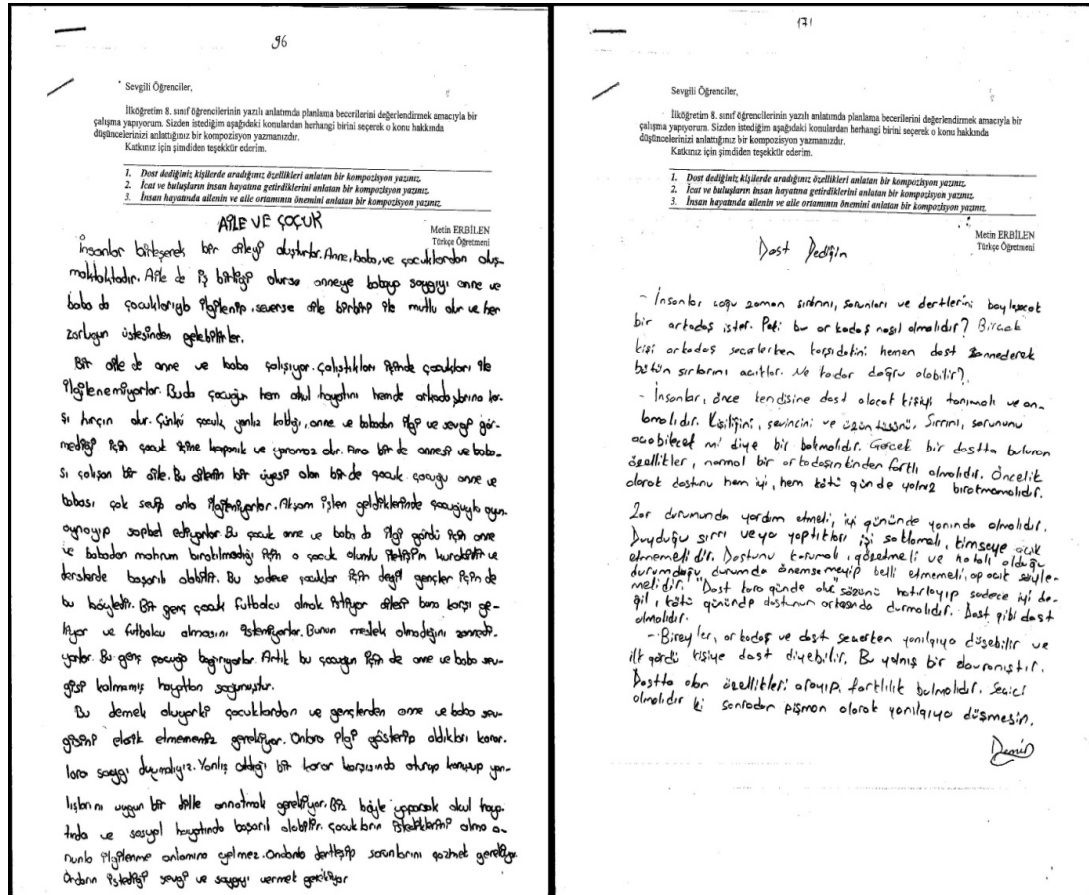 96
Sevgili Öğrenciler,
İlköğretim 8. sınıf öğrencilerinin yazılı anlatımda planlama becerilerini değerlendirmek amacıyla bir
çalışma yapıyorum. Sizden istediğim aşağıdaki konulardan herhangi birini seçerek o konu hakkında
düşüncelerinizi anlattığınız bir kompozisyon yazmanızdır.
Katkınız için şimdiden teşekkür ederim.
1. Dost dediğiniz kişilerde aradığınız özellikleri anlatan bir kompozisyon yazınız.
2. İcat ve buluşların insan hayatına getirdiklerini anlatan bir kompozisyon yazınız.
3. İnsan hayatında ailenin ve aile ortamının önemini anlatan bir kompozisyon yazınız.
Metin ERBİLEN
Türkçe Öğretmeni
AİLE VE ÇOCUK
İnsanlar birleşerek bir aileyi oluşturlar. Anne, baba, ve çocuklardan oluş-
maktaktadır. Aile de iş birliği olursa anneye babaya saygıyı anne ve
baba da çocuklarıyla ilgilenip, severse aile birbiri ile mutlu olur ve her
zorluğun üstesinden gelebilirler.
Bir aile de anne ve baba çalışıyor. Çalıştıkları içinde çocukları ile
ilgilenemiyorlar. Buda çocuğun hem okul hayatını hemde arkadaşlarına kar-
şı hırçın olur. Çünkü çocuk yanlız kaldığı, anne ve babadan ilgi ve sevgi gör-
mediği için çocuk içine kapanık ve yaramaz olur. Ama bir de annesi ve baba-
sı çalışan bir aile. Bu ailenin bir üyesi olan bir de çocuk. çocuğu anne ve
babası çok sevip onla ilgileniyorlar. Akşam işten geldiklerinde çocuğuyla oyun
oynayıp sohbet ediyorlar. Bu çocuk anne ve baba da ilgi gördü için
ve babadan mahrum bırakılmadığı için o çocuk olumlu iletişim kurabilir ve
derslerde başarılı olabilir. Bu sadece çocuklar için değil gençler için de
bu böyledir. Bir genç çocuk futbolcu olmak istiyor ailesi buna karşı ge-
liyor ve futbolcu olmasını istemiyorlar. Bunun meslek olmadığını zannedi-
yorlar. Bu genç çocuğa bağırıyorlar. Artık bu çocuğun için de anne ve baba sev-
gisi kalmamış hayattan soğumuştur.
Bu demek oluyorki çocuklardan ve gençlerden anne ve baba sev-
gisini eksik etmememiz gerekiyor. Onlara ilgi gösterip aldıkları karar-
lara saygı duymalıyız. Yanlış aldığı bir karar karşısında oturup konuşup yan-
lışlarını uygun bir dille annatmak gerekiyor. Biz böyle yaparsak okul haya-
tında ve sosyal hayatında başarılı olabilir. çocukların istediklerini alma o-
nunla ilgilenme anlamına gelmez. Onlarla dertleşip sorunlarını çözmek gerekiyor.
Onların istediği sevgi ve saygıyı vermek gerekiyor
171
Sevgili Öğrenciler,
İlköğretim 8. sınıf öğrencilerinin yazılı anlatımda planlama becerilerini değerlendirmek amacıyla bir
çalışma yapıyorum. Sizden istediğim aşağıdaki konulardan herhangi birini seçerek o konu hakkında
düşüncelerinizi anlattığınız bir kompozisyon yazmanızdır.
Katkınız için şimdiden teşekkür ederim.
1. Dost dediğiniz kişilerde aradığınız özellikleri anlatan bir kompozisyon yazınız.
2. İcat ve buluşların insan hayatına getirdiklerini anlatan bir kompozisyon yazınız.
3. İnsan hayatında ailenin ve aile ortamının önemini anlatan bir kompozisyon yazınız.
Metin ERBİLEN
Türkçe Öğretmeni
Dost Dediğin
- İnsanlar çoğu zaman sırlarını, sorunları ve dertlerini paylaşacak
bir arkadaş ister. Peki bu arkadaş nasıl olmalıdır? Birçok
kişi arkadaş seçerlerken karşıdakini hemen dost zannederek
bütün sırlarını açıklar. Ne kadar doğru olabilir?
- İnsanlar, önce kendisine dost olacak kişiyi tanımalı ve an-
lamalıdır. Kişiliğini, sevincini ve üzüntüsünü, Sırrını, sorununu
açabilecek mi diye bir bakmalıdır. Gerçek bir dostta bulunan
özellikler, normal bir arkadaşınkinden farklı olmalıdır. Öncelik
olarak dostunu hem iyi, hem kötü günde yalnız bırakmamalıdır.
Zor durumunda yardım etmeli, iyi gününde yanında olmalıdır.
Duyduğu sırrı veya yaptıkları işi saklamalı, kimseye açık
etmemelidir. Dostunu korumalı, gözetmeli ve hatalı olduğu
durumda önemsemeyip belli etmemeli, apaçık söyle-
melidir. "Dost kara günde olur" sözünü hatırlayıp sadece iyi de-
ğil, kötü gününde dostunun arkasında durmalıdır. Dost gibi dost
olmalıdır.
- Bireyler, arkadaş ve dost seçerken yanılgıya düşebilir ve
ilk gördü kişiye dost diyebilir. Bu yalnış bir davranıştır.
Dostta olan özellikleri arayıp, farklılık bulmalıdır. Seçici
olmalıdır ki sonradan pişman olarak yanılgıya düşmesin.
Demir